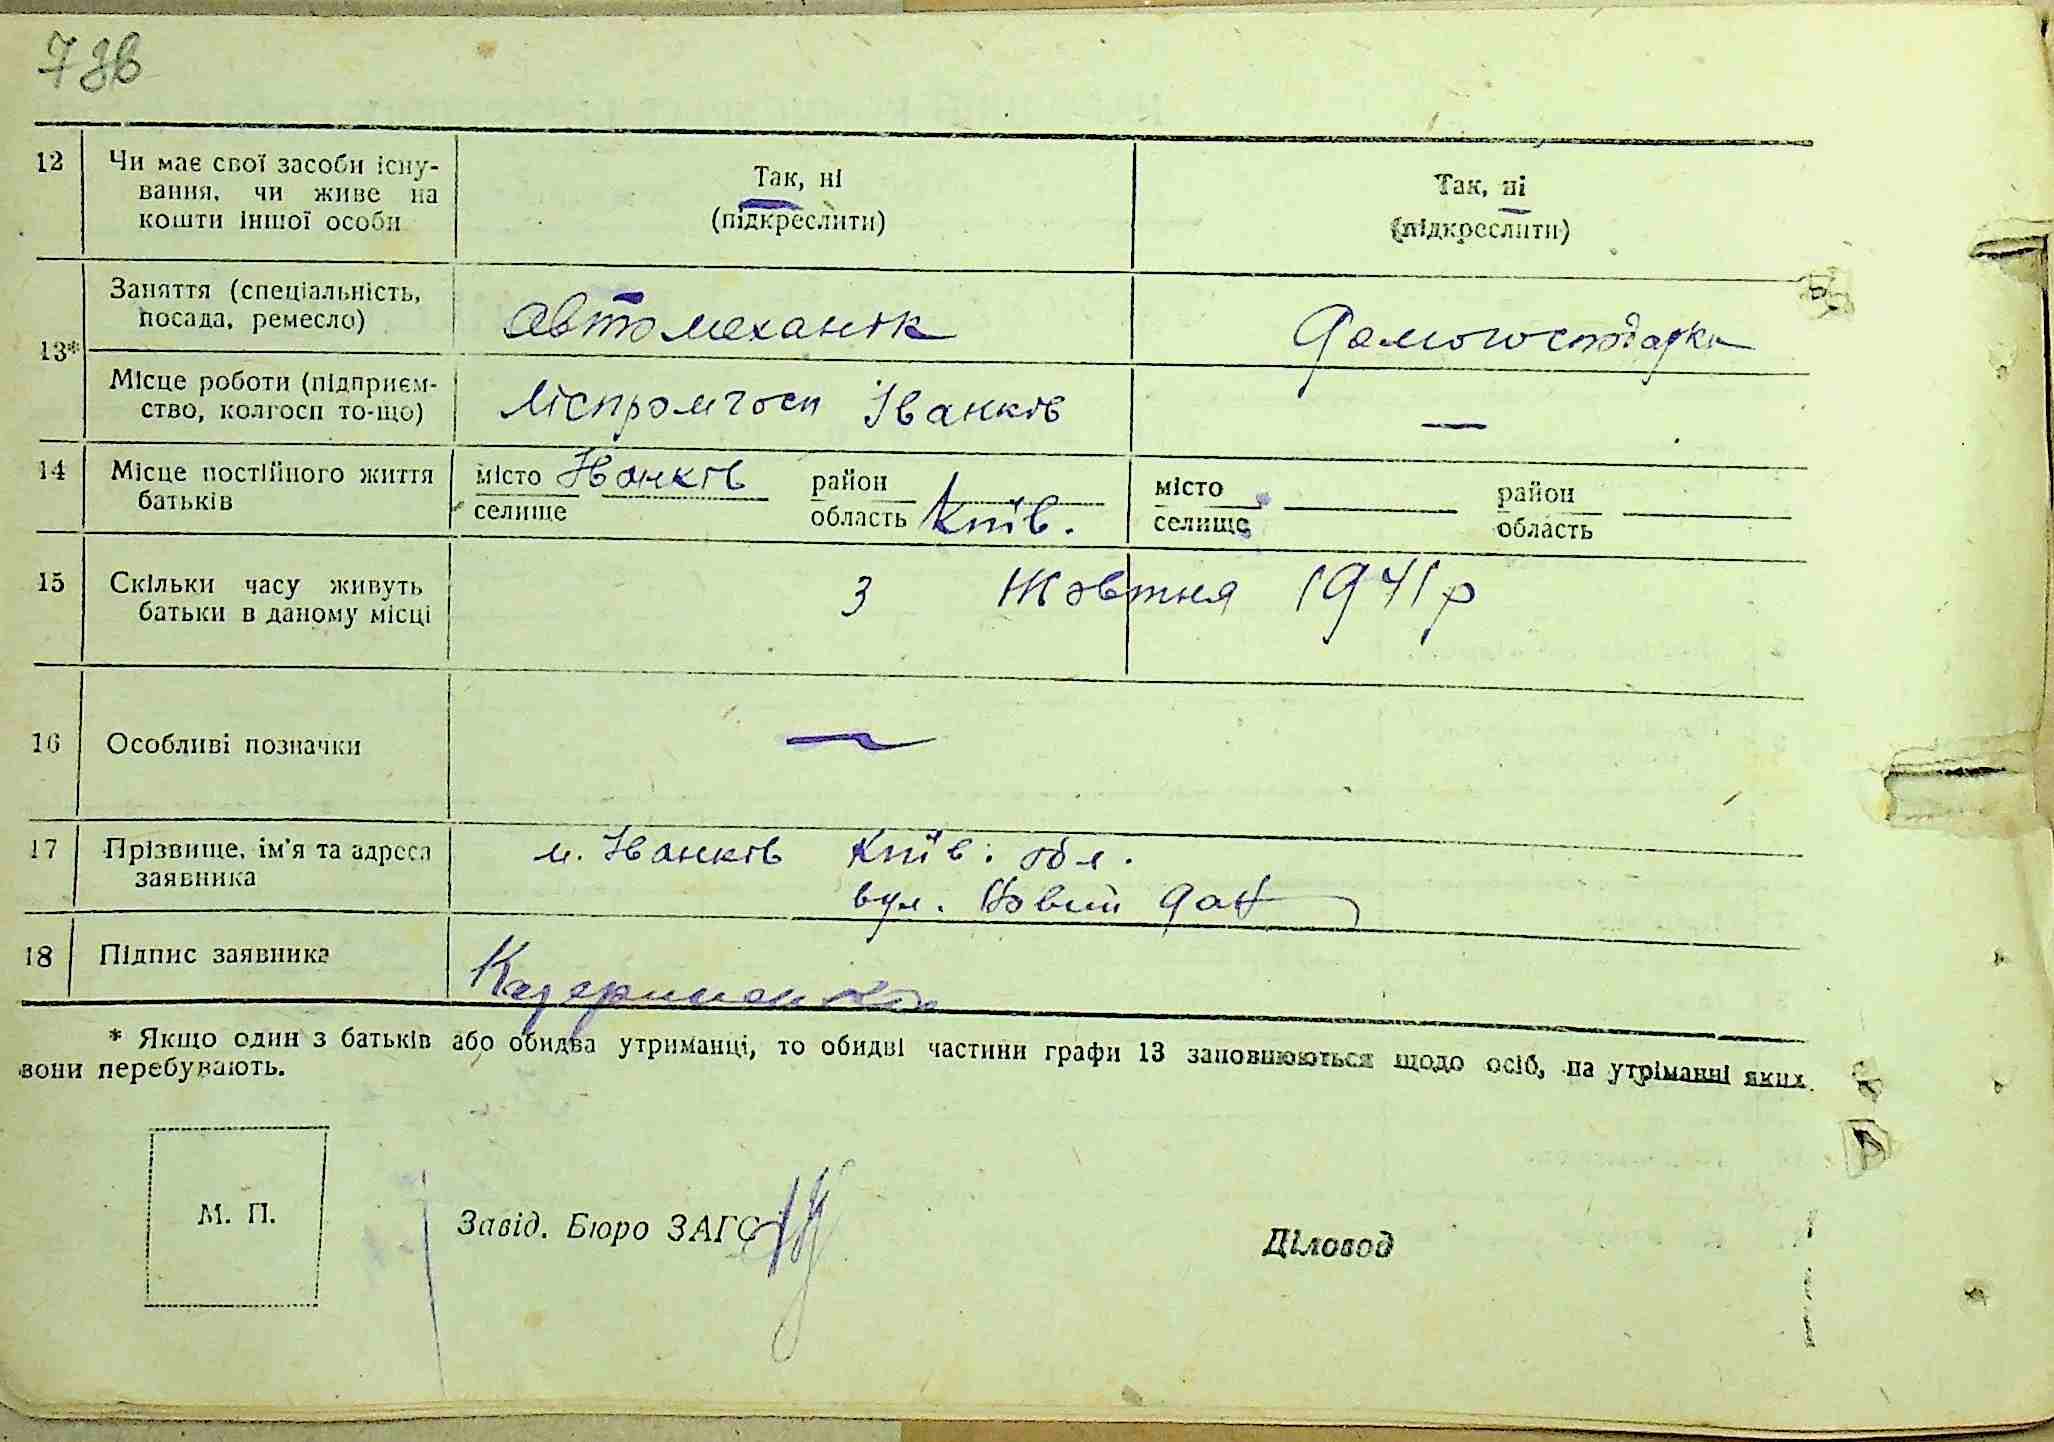 7 зв
12 Чи має свої засоби існу-
вання, чи живе на
кошти іншої особи
Так, ні
(підкреслити)
Так, ні
(підкреслити)
13*
Заняття (спеціальність,
посада, ремесло)
автомеханік
Домогосподарка
Місце роботи (підприєм-
ство, колгосп то-що)
Ліспромгосп Іванків
—
14 Місце постійного життя
батьків
місто Іванків район
селище область Київ.
місто район
селище область
15 Скільки часу живуть
батьки в даному місці
З Жовтня 1941 р
16 Особливі позначки
—
17 Прізвище, ім'я та адреса
заявника
м. Іванків Київ. обл.
вул. Новий
18 Підпис заявника
* Якщо один з батьків або обидва утриманці, то обидві частини графи 13 заповнюються щодо осіб, на утріманні яких
вони перебувають.
М. П.
Завід. Бюро ЗАГС
Діловод